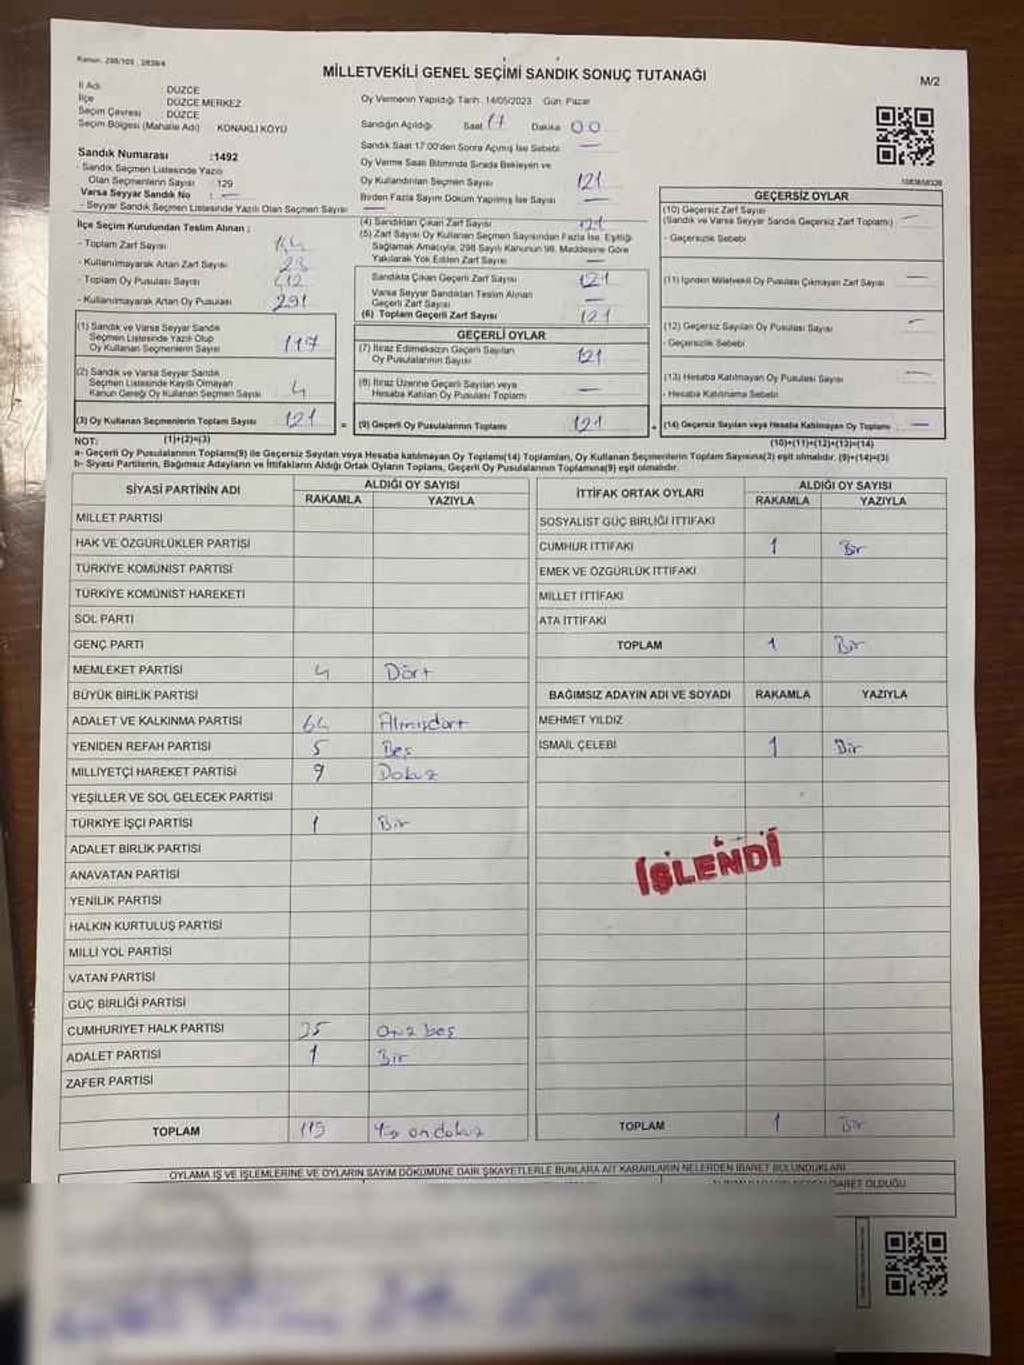 Kanun: 298/105 , 2839/4
MİLLETVEKİLİ GENEL SEÇİMİ SANDIK SONUÇ TUTANAĞI
M/2
İl Adı : DÜZCE
İlçe : DÜZCE MERKEZ
Seçim Çevresi : DÜZCE
Seçim Bölgesi (Mahalle Adı) KONAKLI KÖYÜ
Sandık Numarası :1492
- Sandık Seçmen Listesinde Yazılı
Olan Seçmenlerin Sayısı 129
Varsa Seyyar Sandık No : —
- Seyyar Sandık Seçmen Listesinde Yazılı Olan Seçmen Sayısı —
İlçe Seçim Kurulundan Teslim Alınan :
- Toplam Zarf Sayısı
- Kullanılmayarak Artan Zarf Sayısı 23
- Toplam Oy Pusulası Sayısı 412
- Kullanılmayarak Artan Oy Pusulası 291
(1) Sandık ve Varsa Seyyar Sandık
Seçmen Listesinde Yazılı Olup
Oy Kullanan Seçmenlerin Sayısı 117
(2) Sandık ve Varsa Seyyar Sandık
Seçmen Listesinde Kayıtlı Olmayan
Kanun Gereği Oy Kullanan Seçmen Sayısı 4
(3) Oy Kullanan Seçmenlerin Toplam Sayısı 121
(1)+(2)=(3)
Oy Vermenin Yapıldığı Tarih: 14/05/2023 Gün: Pazar
Sandığın Açıldığı Saat 17 Dakika 00
Sandık Saat 17:00'den Sonra Açılmış İse Sebebi —
Oy Verme Saati Bitiminde Sırada Bekleyen ve
Oy Kullandırılan Seçmen Sayısı 121
Birden Fazla Sayım Döküm Yapılmış İse Sayısı —
(4) Sandıktan Çıkan Zarf Sayısı 121
(5) Zarf Sayısı Oy Kullanan Seçmen Sayısından Fazla İse, Eşitliği
Sağlamak Amacıyla, 298 Sayılı Kanunun 98. Maddesine Göre
Yakılarak Yok Edilen Zarf Sayısı —
Sandıkta Çıkan Geçerli Zarf Sayısı 121
Varsa Seyyar Sandıktan Teslim Alınan
Geçerli Zarf Sayısı —
(6) Toplam Geçerli Zarf Sayısı 121
GEÇERLİ OYLAR
(7) İtiraz Edilmeksizin Geçerli Sayılan
Oy Pusulalarının Sayısı 121
(8) İtiraz Üzerine Geçerli Sayılan veya
Hesaba Katılan Oy Pusulası Toplamı —
= (9) Geçerli Oy Pusulalarının Toplamı 121 +
1083858328
GEÇERSİZ OYLAR
(10) Geçersiz Zarf Sayısı
(Sandık ve Varsa Seyyar Sandık Geçersiz Zarf Toplamı) —
- Geçersizlik Sebebi
(11) İçinden Milletvekili Oy Pusulası Çıkmayan Zarf Sayısı —
(12) Geçersiz Sayılan Oy Pusulası Sayısı —
- Geçersizlik Sebebi
(13) Hesaba Katılmayan Oy Pusulası Sayısı —
- Hesaba Katılmama Sebebi
(14) Geçersiz Sayılan veya Hesaba Katılmayan Oy Toplamı —
(10)+(11)+(12)+(13)=(14)
NOT:
a- Geçerli Oy Pusulalarının Toplamı(9) ile Geçersiz Sayılan veya Hesaba katılmayan Oy Toplamı(14) Toplamları, Oy Kullanan Seçmenlerin Toplam Sayısına(3) eşit olmalıdır. (9)+(14)=(3)
b- Siyasi Partilerin, Bağımsız Adayların ve İttifakların Aldığı Ortak Oyların Toplamı, Geçerli Oy Pusulalarının Toplamına(9) eşit olmalıdır.
SİYASİ PARTİNİN ADI ALDIĞI OY SAYISI
RAKAMLA YAZIYLA
MİLLET PARTİSİ
HAK VE ÖZGÜRLÜKLER PARTİSİ
TÜRKİYE KOMÜNİST PARTİSİ
TÜRKİYE KOMÜNİST HAREKETİ
SOL PARTİ
GENÇ PARTİ
MEMLEKET PARTİSİ 4 Dört
BÜYÜK BİRLİK PARTİSİ
ADALET VE KALKINMA PARTİSİ 64 Altmışdört
YENİDEN REFAH PARTİSİ 5 Beş
MİLLİYETÇİ HAREKET PARTİSİ 9 Dokuz
YEŞİLLER VE SOL GELECEK PARTİSİ
TÜRKİYE İŞÇİ PARTİSİ 1 Bir
ADALET BİRLİK PARTİSİ
ANAVATAN PARTİSİ
YENİLİK PARTİSİ
HALKIN KURTULUŞ PARTİSİ
MİLLİ YOL PARTİSİ
VATAN PARTİSİ
GÜÇ BİRLİĞİ PARTİSİ
CUMHURİYET HALK PARTİSİ 35 Otuz beş
ADALET PARTİSİ 1 Bir
ZAFER PARTİSİ
TOPLAM 119 Yüz ondokuz
İTTİFAK ORTAK OYLARI ALDIĞI OY SAYISI
RAKAMLA YAZIYLA
SOSYALİST GÜÇ BİRLİĞİ İTTİFAKI
CUMHUR İTTİFAKI 1 Bir
EMEK VE ÖZGÜRLÜK İTTİFAKI
MİLLET İTTİFAKI
ATA İTTİFAKI
TOPLAM 1 Bir
BAĞIMSIZ ADAYIN ADI VE SOYADI RAKAMLA YAZIYLA
MEHMET YILDIZ
İSMAİL ÇELEBİ 1 Bir
İŞLENDİ
TOPLAM 1 Bir
OYLAMA İŞ VE İŞLEMLERİNE VE OYLARIN SAYIM DÖKÜMÜNE DAİR ŞİKAYETLERLE BUNLARA AİT KARARLARIN NELERDEN İBARET BULUNDUKLARI